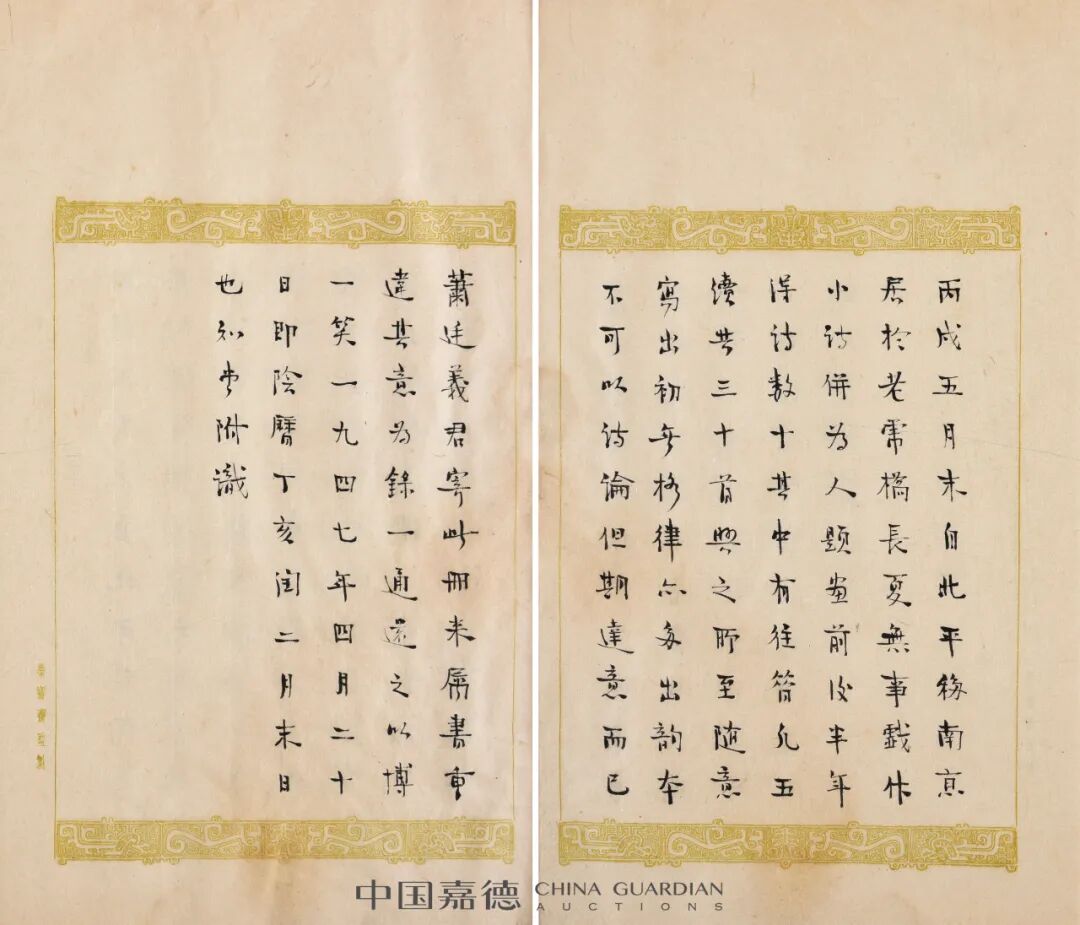 丙戌五月末自北平移南京
居於老虎橋長夏無事戲作
小詩併為人題畫前後半年
得詩數十其中有往昔凡五
續共三十首興之所至隨意
寫出初無格律亦多出韻本
不可以詩論但期達意而已
蕭廷義君寄此冊来屬書重
違其意為錄一通還之以博
一笑一九四七年四月二十
日即陰曆丁亥閏二月末日
也知堂附識
中国嘉德 CHINA GUARDIAN
AUCTIONS